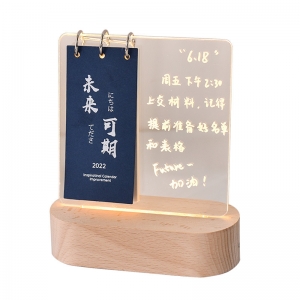 未来
可期
にちは
てださ
2022
Inspirational Calendar
Improvement
"6.18"
周五下午2:30
上交材料，记得
提前准备好名单
和表格
Future~
加油！